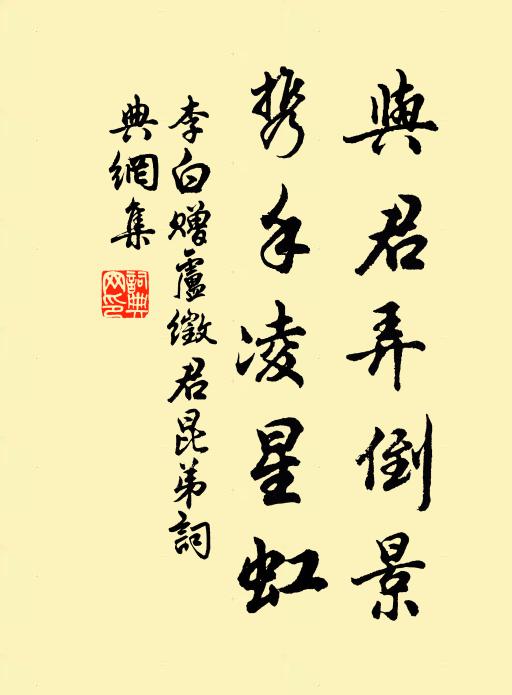 與君弄倒景
携手凌星虹
李白贈盧徵君昆弟詞
典網集
詞典
网印